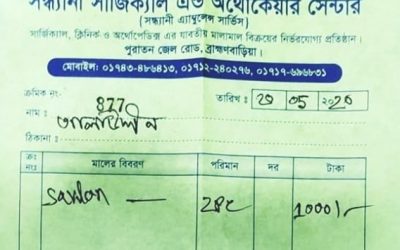 সন্ধ্যানী সার্জিক্যাল এন্ড অর্থোকেয়ার সেন্টার
(সন্ধানী এ্যাম্বুলেন্স সার্ভিস)
সার্জিক্যাল, ক্লিনিক ও অর্থোপেডিক্স এর যাবতীয় মালামাল বিক্রয়ের নির্ভরযোগ্য প্রতিষ্ঠান।
পুরাতন জেল রোড, ব্রাহ্মণবাড়িয়া।
মোবাইল: ০১৭৪৩-৪৮৬৪১৩, ০১৭১২-২৪০২৭৬, ০১৭১৭-৬৯৬৮৩১
ক্রমিক নং- 877 তারিখ : 20 05 2020
নাম :
ঠিকানা :
ক্রঃ নংঃ মালের বিবরণ পরিমান দর টাকা
Savlon — 2Pc 1000/-